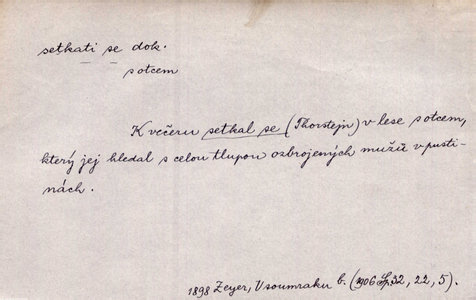 setkati se dok.
s otcem
K večeru setkal se (Thorstejn) v lese s otcem,
který jej hledal s celou tlupou ozbrojených mužů v pusti-
nách.
1898 Zeyer, V soumraku b. (1906 Sp. 32, 22, 5).